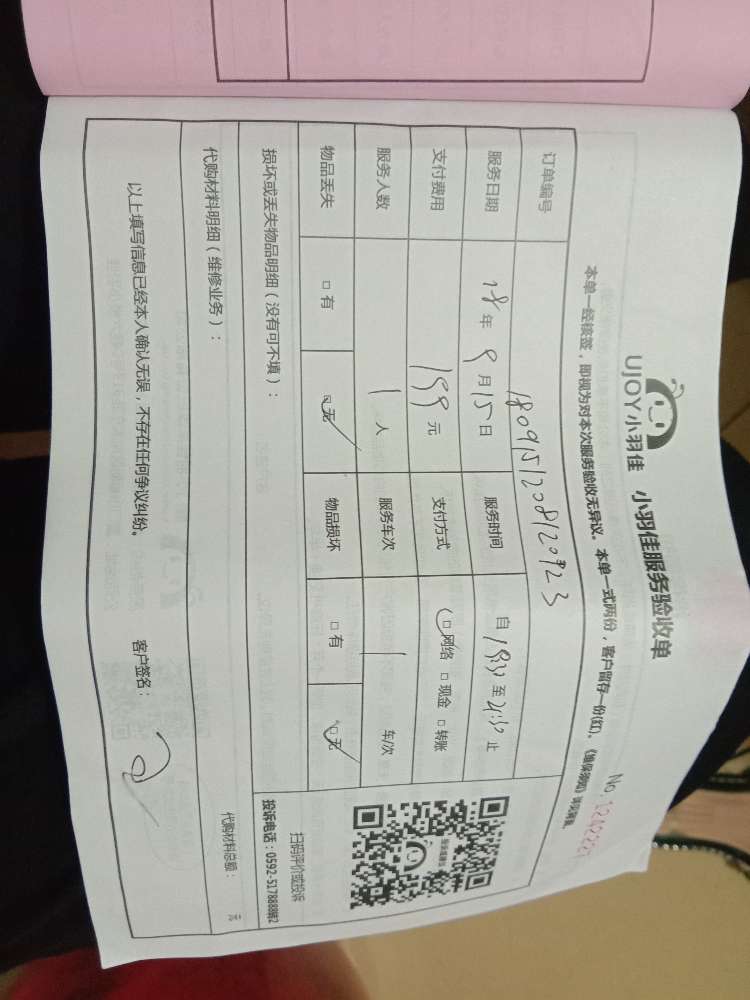 UJOY小羽佳 小羽佳服务验收单
本单一经核签，即视为对本次服务验收无异议。 本单一式两份，客户留存一份(红)。《维保须知》详见背面。
订单编号 1809151208120923
服务日期 18年9月15日 服务时间 自18:30至21:30止
支付费用 199元 支付方式 □网络 □现金 □转账
服务人数 1人 服务车次 1 车/次
物品丢失 □有 □无 物品损坏 □有 □无
损坏或丢失物品明细（没有可不填）：
扫码评价或投诉
投诉电话：0592-5178888转2
代购材料明细（维修业务）：
代购材料总额： 元
以上填写信息已经本人确认无误，不存在任何争议纠纷。 客户签名：